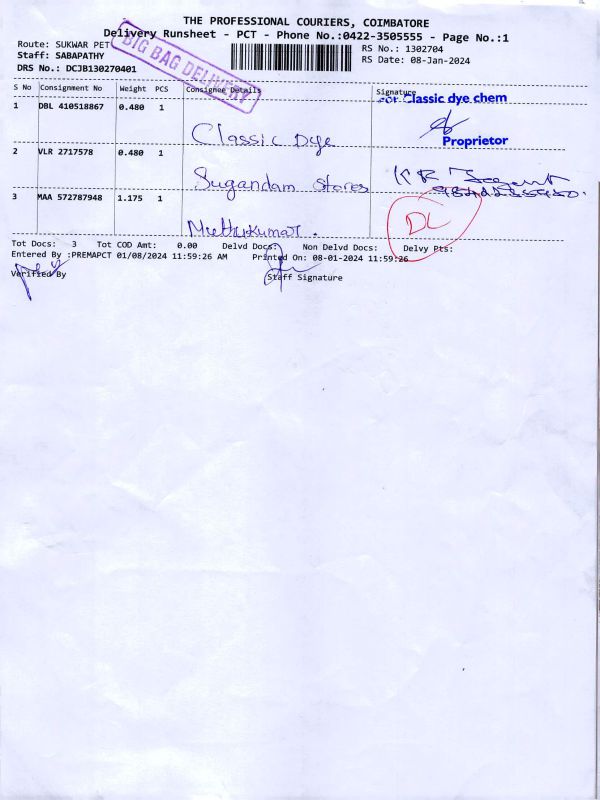 THE PROFESSIONAL COURIERS, COIMBATORE
Delivery Runsheet - PCT - Phone No.:0422-3505555 - Page No.:1
Route: SUKWAR PET
Staff: SABAPATHY
DRS No.: DCJB130270401
RS No.: 1302704
RS Date: 08-Jan-2024
BIG BAG DELIVERY
S No Consignment No Weight PCS Consignee Details Signature
1 DBL 410518867 0.480 1
For Classic dye chem
Classic Dye
Proprietor
2 VLR 2717578 0.480 1
Sugandam Stores
3 MAA 572787948 1.175 1
Muthukumar.
DL
Tot Docs: 3 Tot COD Amt: 0.00 Delvd Docs: Non Delvd Docs: Delvy Pts:
Entered By :PREMAPCT 01/08/2024 11:59:26 AM Printed On: 08-01-2024 11:59:26
Verified By Staff Signature